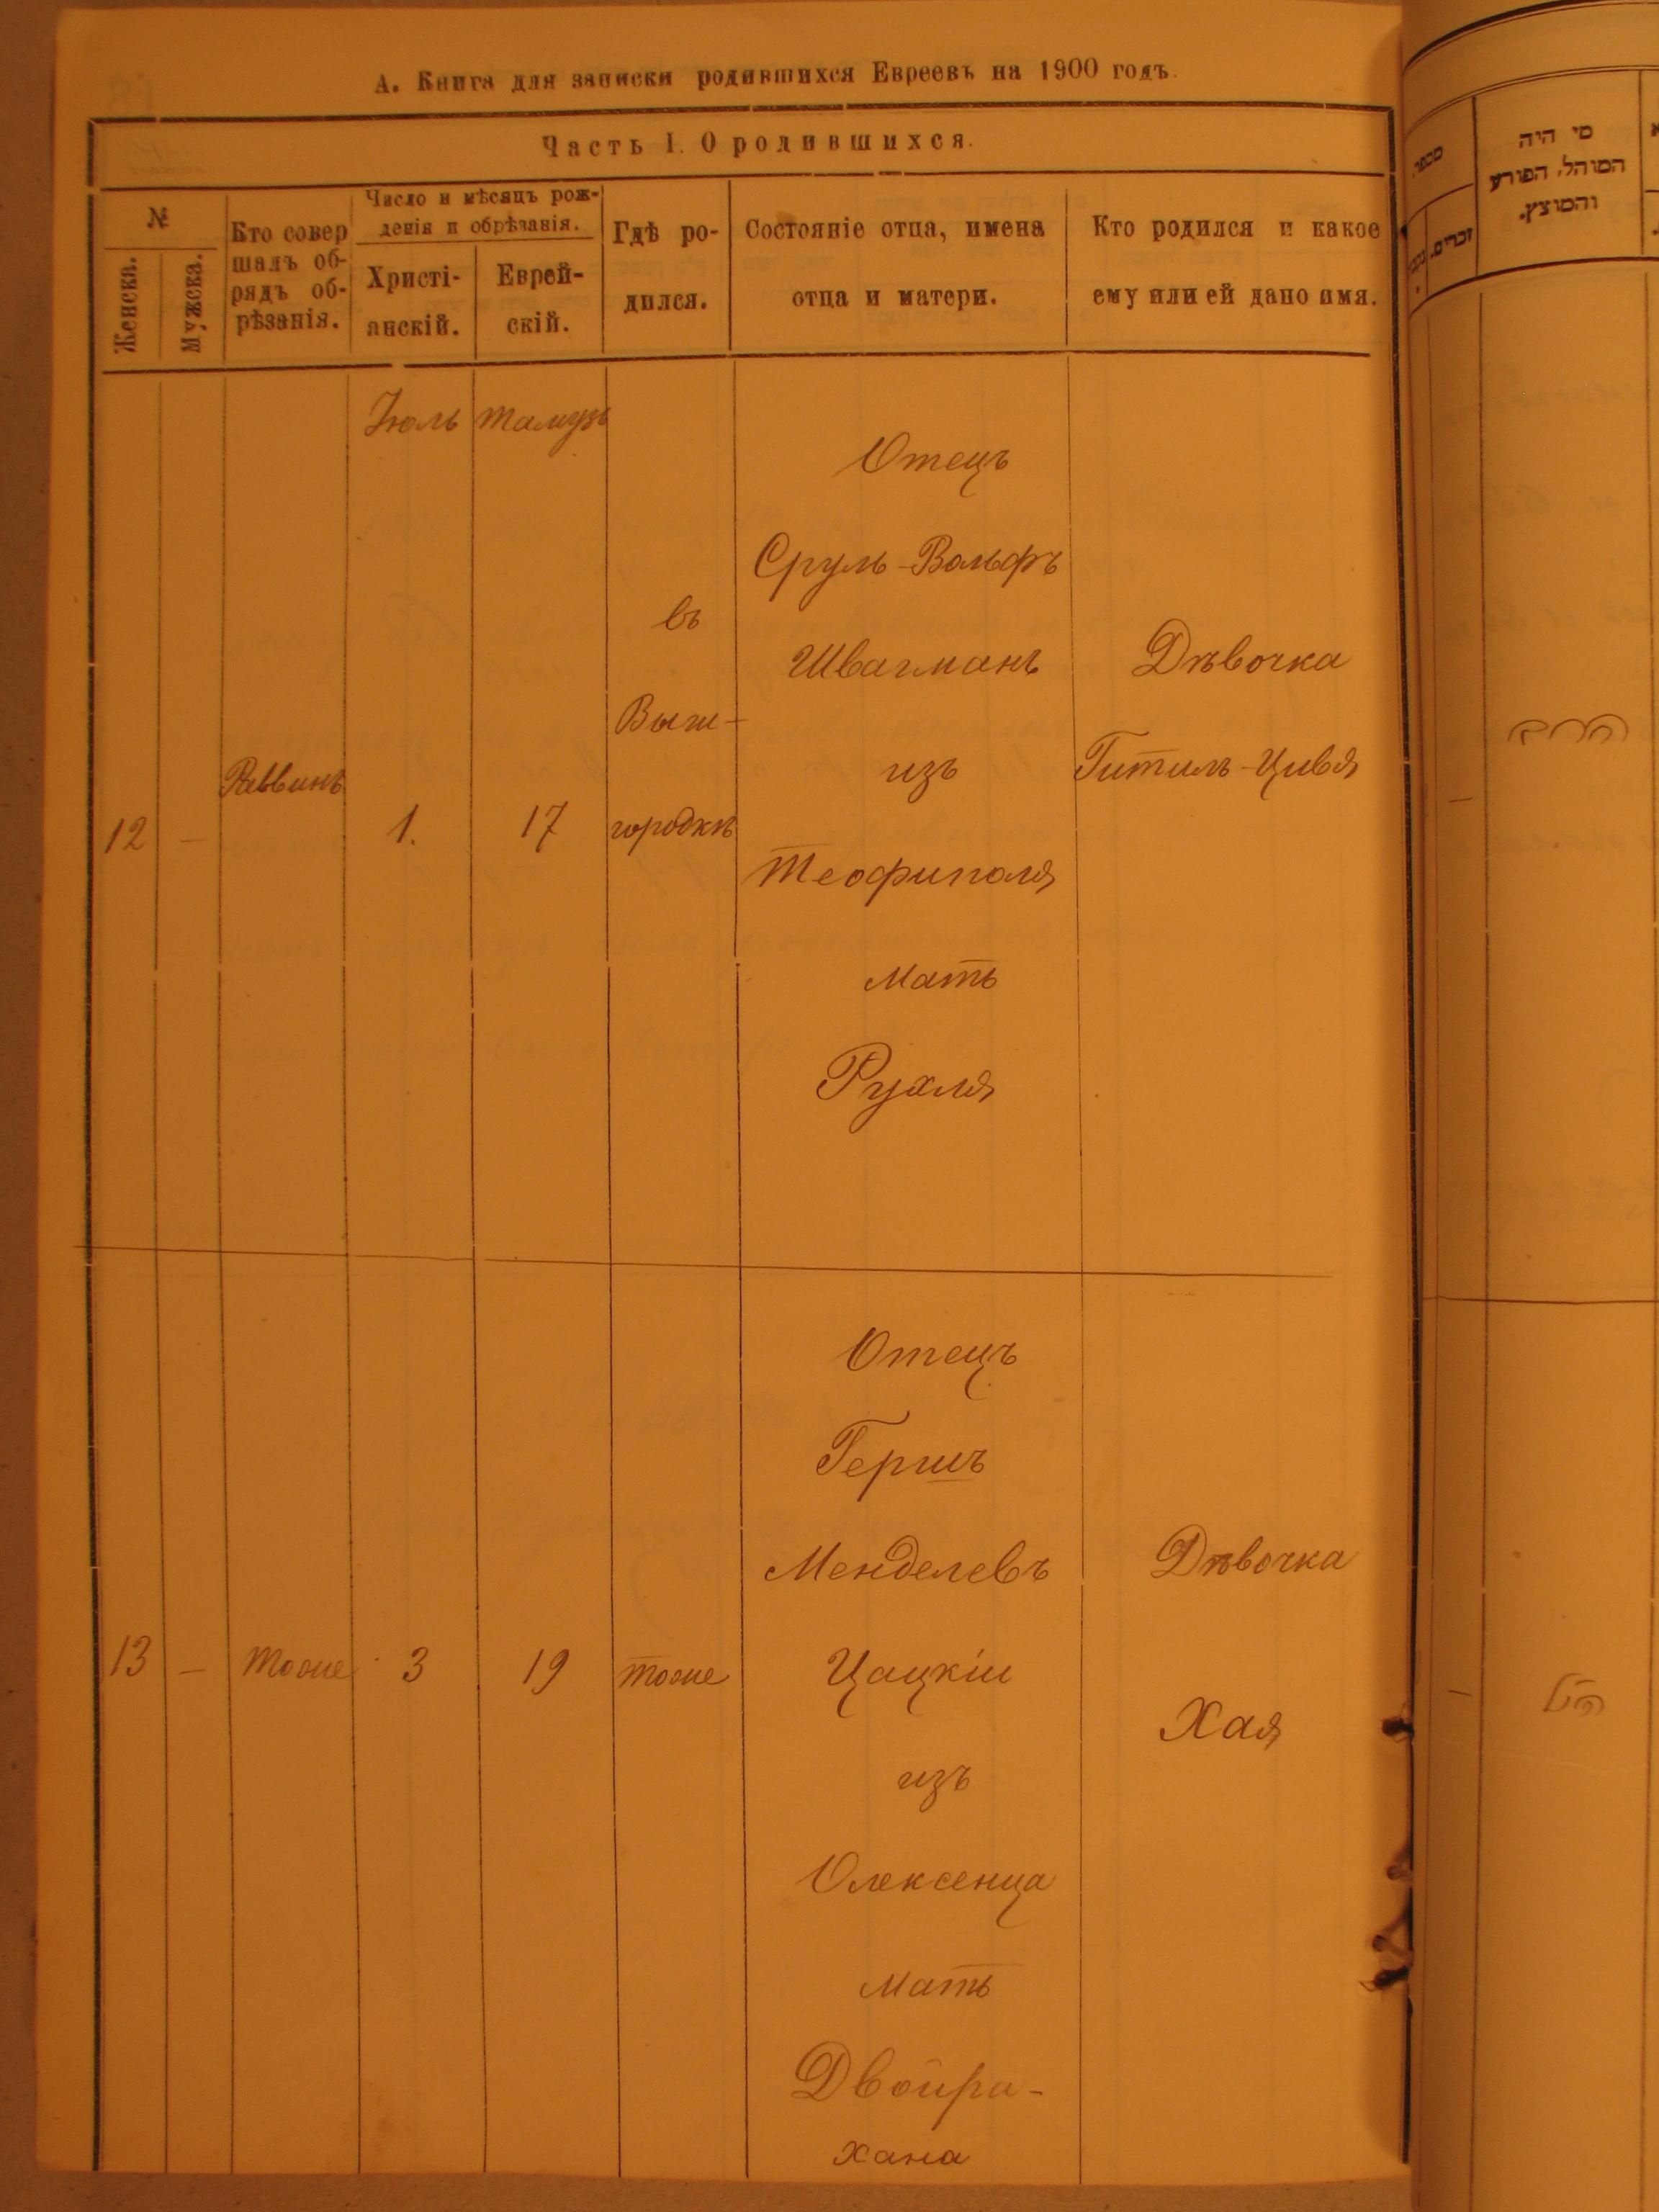 А. Книга для записки родившихся Евреевъ на 1900 годъ.
Часть I. О родившихся.
№
Женска.
Мужска.
Кто совер
шалъ об-
рядъ об-
рѣзанія.
Число и мѣсяцъ рож-
денія и обрѣзанія.
Христі-
анскій.
Еврей-
скій.
Гдѣ ро-
дился.
Состояніе отца, имена
отца и матери.
Кто родился и какое
ему или ей дано имя.
Іюль
Тамузъ
12
—
Раввинъ
1.
17
въ
Выш-
городкѣ
Отецъ
Сруль-Вольфъ
Швагманъ
изъ
Теофиполя
Мать
Рухля
Дѣвочка
Гитиль-Цивя
13
—
Тоже
3
19
Тоже
Отецъ
Гершъ
Менделевъ
Цацкіи
изъ
Олексенца
Мать
Двойра-
Хана
Дѣвочка
Хая
מספר
זכרים.
מי היה
המוהל, הפורע
והמוצץ.
—
הרב
—
הנ״ל